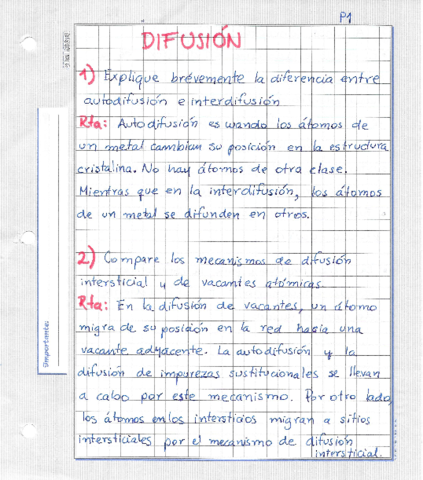 P1
DIFUSIÓN
1) Explique brévemente la diferencia entre
autodifusión e interdifusión
Rta: Autodifusión es cuando los átomos de
un metal cambian su posición en la estructura
cristalina. No hay átomos de otra clase.
Mientras que en la interdifusión, los átomos
de un metal se difunden en otros.
2) Compare los mecanismos de difusión
intersticial y de vacantes atómicas.
Rta: En la difusión de vacantes, un átomo
migra de su posición en la red hacia una
vacante adyacente. La autodifusión y la
difusión de impurezas sustitucionales se llevan
a cabo por este mecanismo. Por otro lado,
los átomos en los intersticios migran a sitios
intersticiales por el mecanismo de difusión
intersticial.
Importante: